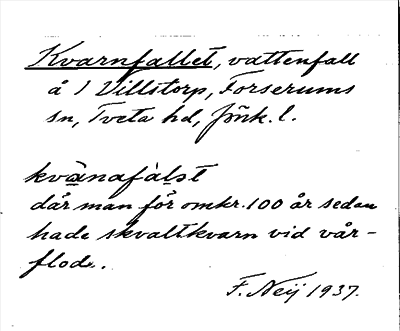 Kvarnfallet, vattenfall
å 1 Villstorp, Forserums
sn, Tveta hd, Jönk. l.
kvànafàlst
där man för omkr. 100 år sedan
hade skvaltkvarn vid vår-
flod.
F. Neij 1937.